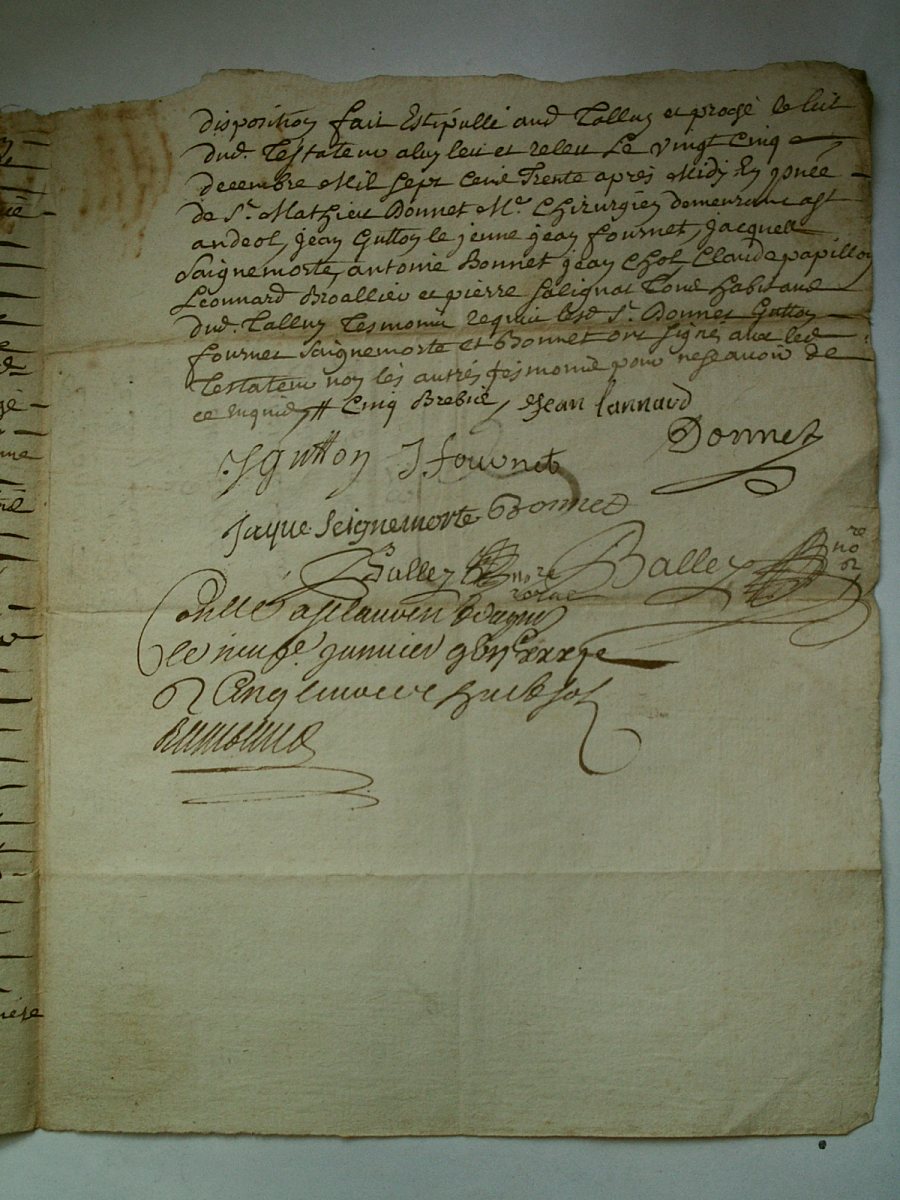 disposition fait Estipullé aud Talluy et proche le lict
dud. Testateur a luy leu et releu Le vingt Cinq
decembre Mil Sept Cent Trente après Midy En
de Sr. Mathieu Donnet Me. Chirurgien demeurant a St
andeol, jean Gutton le jeune jean fournet, Jacques
Saignemorte, antoine Bonnet jean Chol, Claude papillon
Leonnard Broallier et pierre Salignat Tous habitans
dud. Talluy Tesmoins requis lesd. Sr. Donnet Gutton
fournet Saignemorte et Bonnet ont signé avec led
Testateur non les autres tesmoins pour ne sçavoir de
ce Enquis # Cinq Brebis, Jean Lannard
Donnet
J Gutton J fournet
Jaque Seignemorte Bonnet
Balley nore Balley nore
le neufe janvier
Cinq